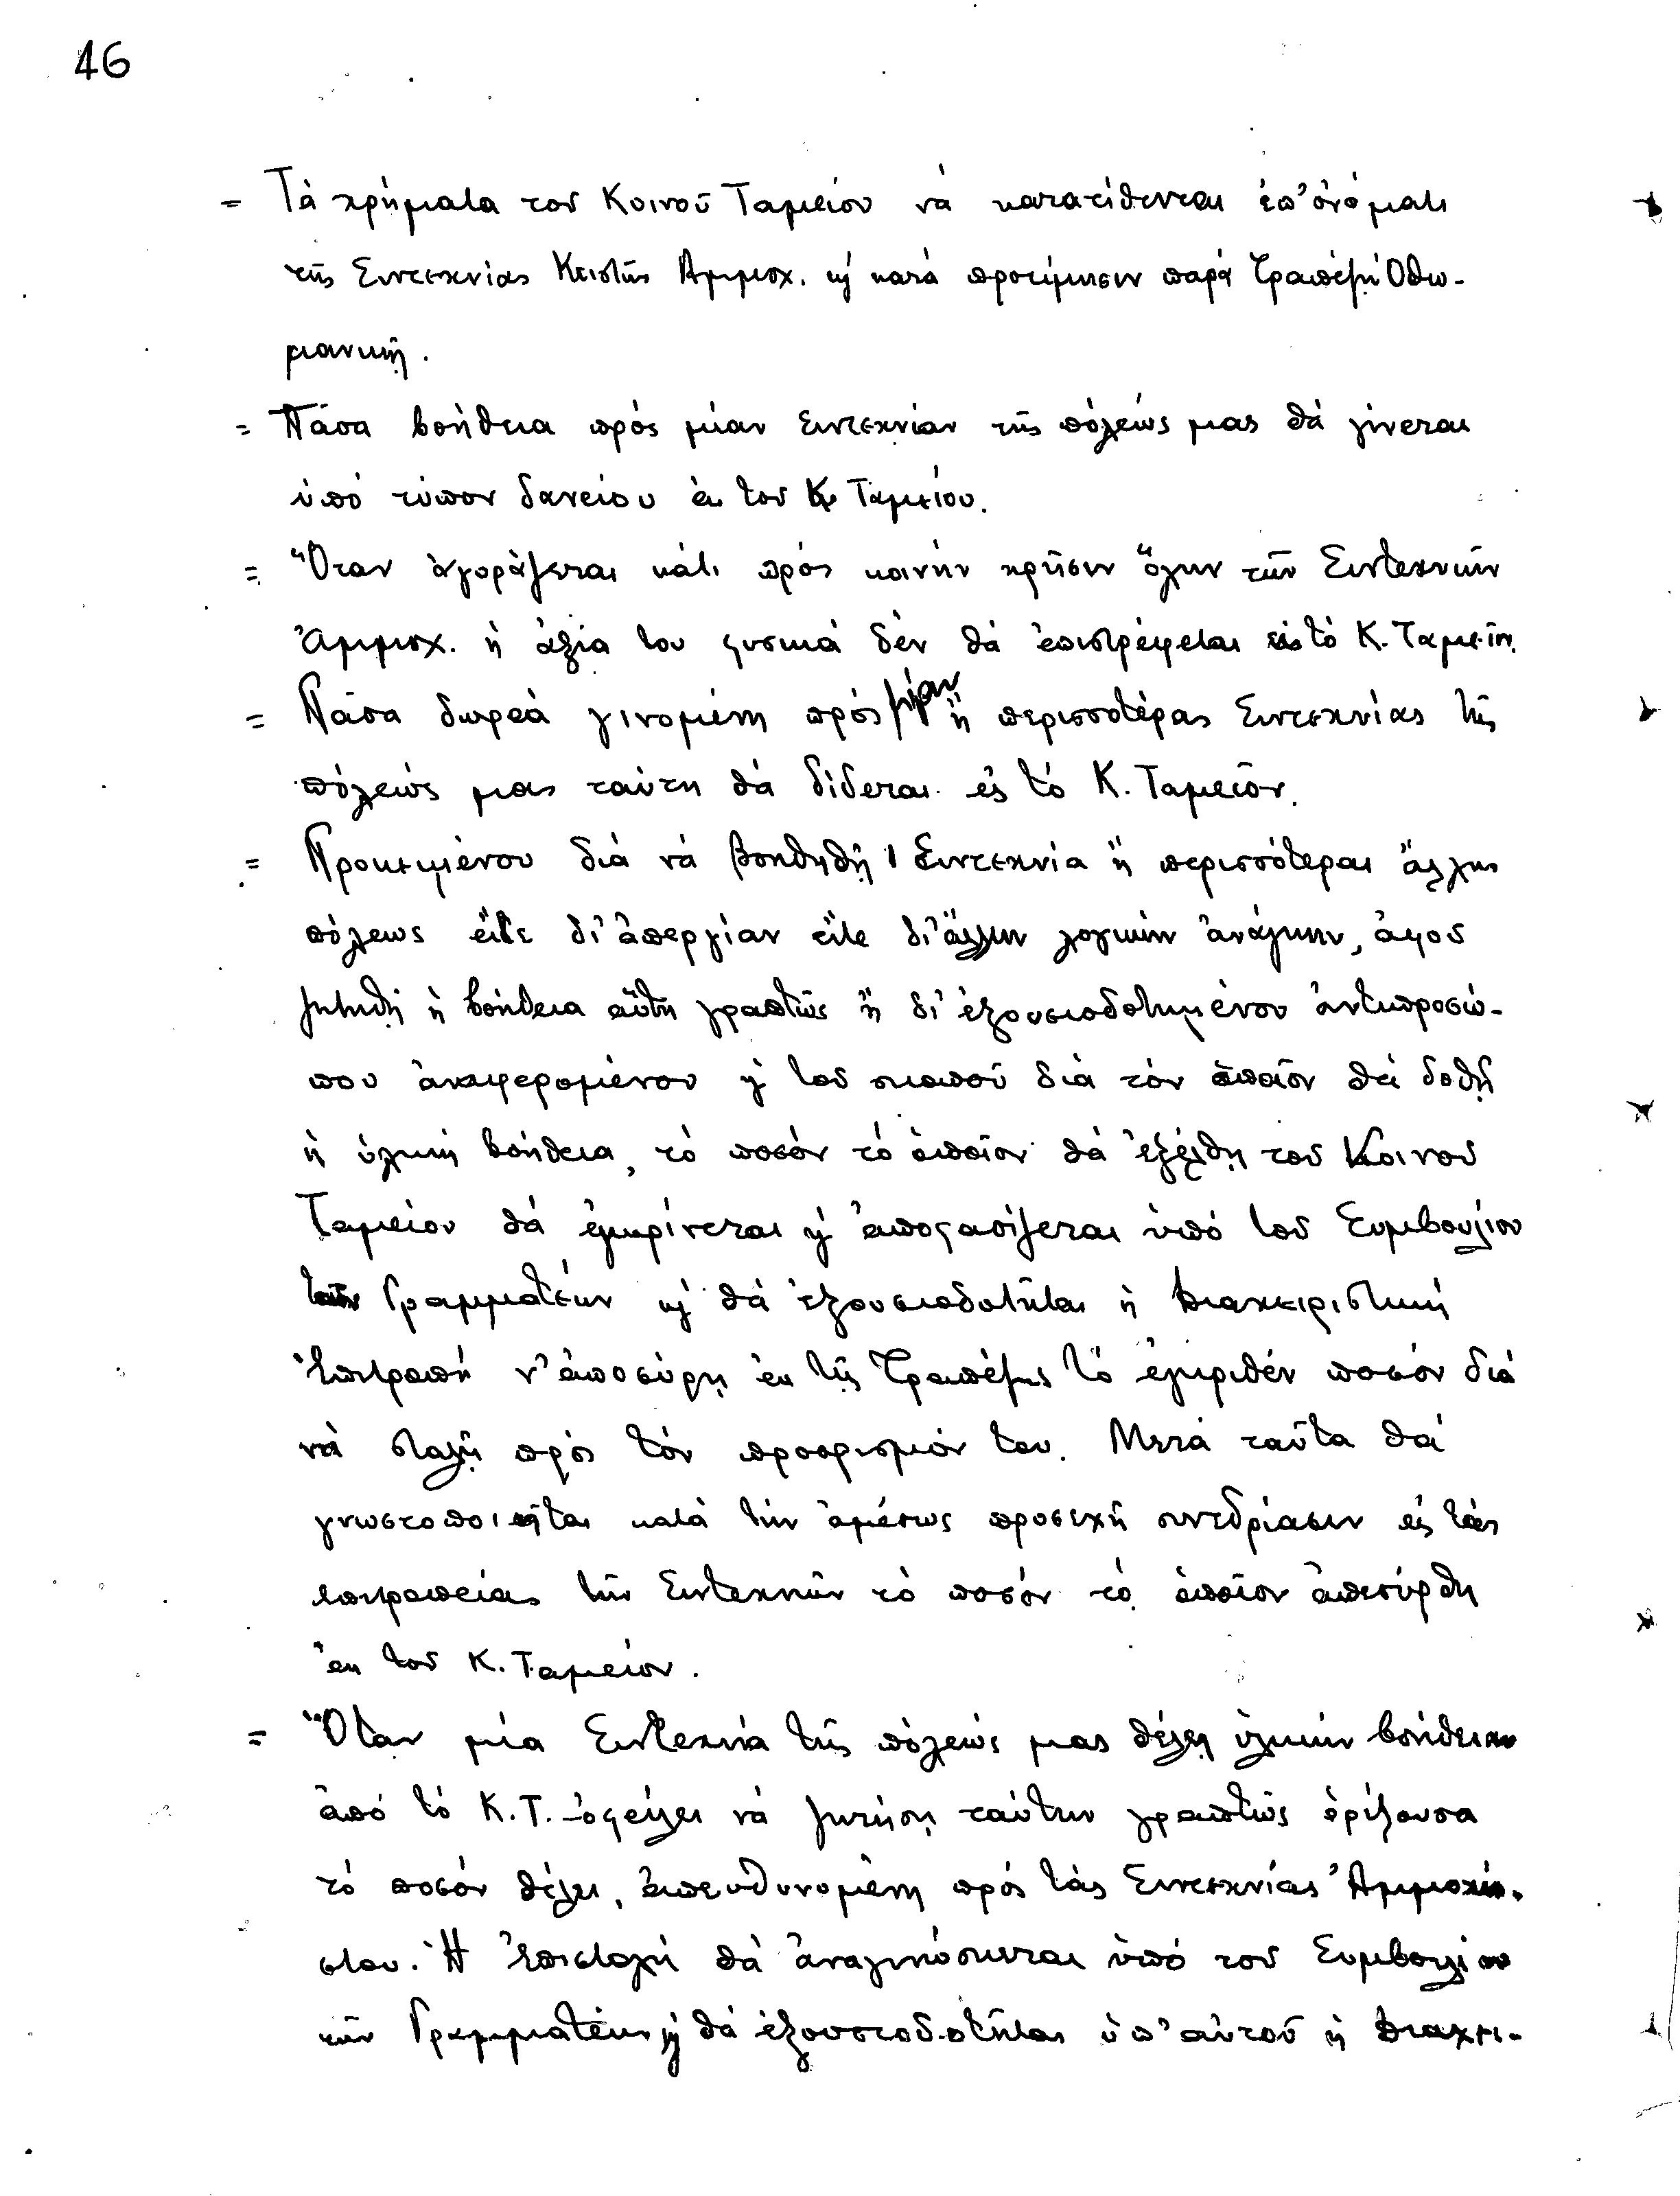 46
= Τὰ χρήματα τοῦ Κοινοῦ Ταμείου νά κατατίθενται ἐπ' ὀνόματι
τῆς Συντεχνίας Κτιστῶν Ἀμμοχ. κ' κατά προτίμησιν παρά Τραπέζῃ Ὀθω-
μανικῇ.
= Πᾶσα βοήθεια πρός μίαν Συντεχνίαν τῆς πόλεώς μας θά γίνεται
ὑπό τύπον δανείου ἐκ τοῦ Κ. Ταμείου.
= Ὅταν ἀγοράζεται κάτι πρός κοινήν χρῆσιν ὅλων τῶν Συντεχνιῶν
Ἀμμοχ. ἡ ἀξία του φυσικά δέν θά ἐπιστρέφεται εἰς τό Κ. Ταμεῖον.
= Πᾶσα δωρεά γινομένη πρός μίαν ἤ περισσοτέρας Συντεχνίας τῆς
πόλεώς μας ταύτη θά δίδεται εἰς τό Κ. Ταμεῖον.
= Προκειμένου διά νά βοηθηθῇ 1 Συντεχνία ἤ περισσότεραι ἄλλης
πόλεως εἴτε δι' ἀπεργίαν εἴτε δι' ἄλλην λογικήν ἀνάγκην, ἀφοῦ
ζητηθῇ ἡ βοήθεια αὕτη γραπτῶς ἤ δι' ἐξουσιοδοτημένου ἀντιπροσώ-
που ἀναφερομένου κ' τοῦ σκοποῦ διά τόν ὁποῖον θά δοθῇ
ἡ ὑλική βοήθεια, τό ποσόν τό ὁποῖον θά ἐξέλθῃ τοῦ Κοινοῦ
Ταμείου θά ἐγκρίνεται κ' ἀποφασίζεται ὑπό τοῦ Συμβουλίου
τῶν Γραμματέων κ' θά ἐξουσιοδοτῆται ἡ Διαχειριστική
Ἐπιτροπή ν' ἀποσύρῃ ἐκ τῆς Τραπέζης τό ἐγκριθέν ποσόν διά
νά σταλῇ πρός τόν προορισμόν του. Μετά ταῦτα θά
γνωστοποιῆται κατά τήν ἀμέσως προσεχῆ συνεδρίασιν εἰς τάς
ἐπιτροπείας τῶν Συντεχνιῶν τό ποσόν τό ὁποῖον ἀπεσύρθη
ἐκ τοῦ Κ. Ταμείου.
= Ὅταν μία Συντεχνία τῆς πόλεώς μας θέλῃ ὑλικήν βοήθειαν
ἀπό τό Κ.Τ. ὀφείλει νά ζητήσῃ ταύτην γραπτῶς ὁρίζουσα
τό ποσόν θέλει, ἀπευθυνομένη πρός τάς Συντεχνίας Ἀμμοχώ-
στου. Ἡ ἐπιστολή θά ἀναγινώσκεται ὑπό τοῦ Συμβουλίου
τῶν Γραμματέων κ' θά ἐξουσιοδοτῆται ὑπ' αὐτοῦ ἡ Διαχει-